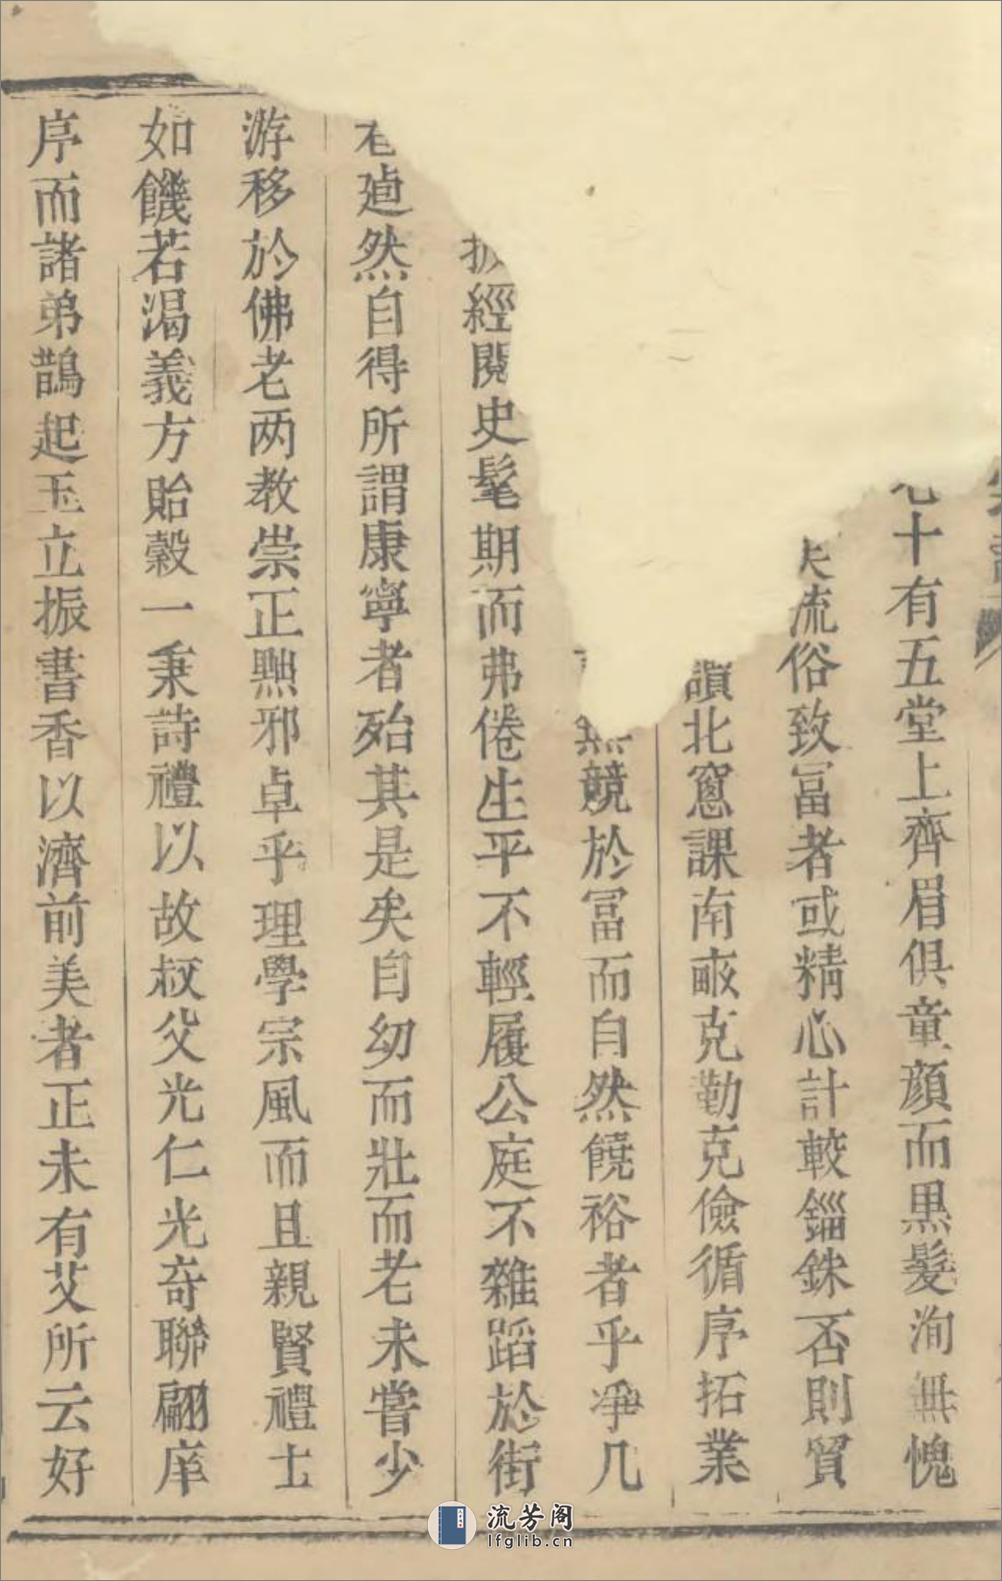 十有五堂上齊眉俱童顔而黒髮洵無愧
流俗致冨者或精心計較錙銖否則貿
北窻課南畝克勤克儉循序拓業
競於冨而自然饒裕者乎凈几
經閱史髦期而弗倦生平不輕履公庭不雜蹈於街
逌然自得所謂康寧者殆其是矣自幼而壯而老未嘗少
游移於佛老两教崇正黜邪卓乎理學宗風而且親賢禮士
如饑若渴義方貽榖一秉詩禮以故叔父光仁光奇聯翩庠
序而諸弟鵲起玉立振書香以濟前美者正未有艾所云好
流芳阁
lfglib.cn